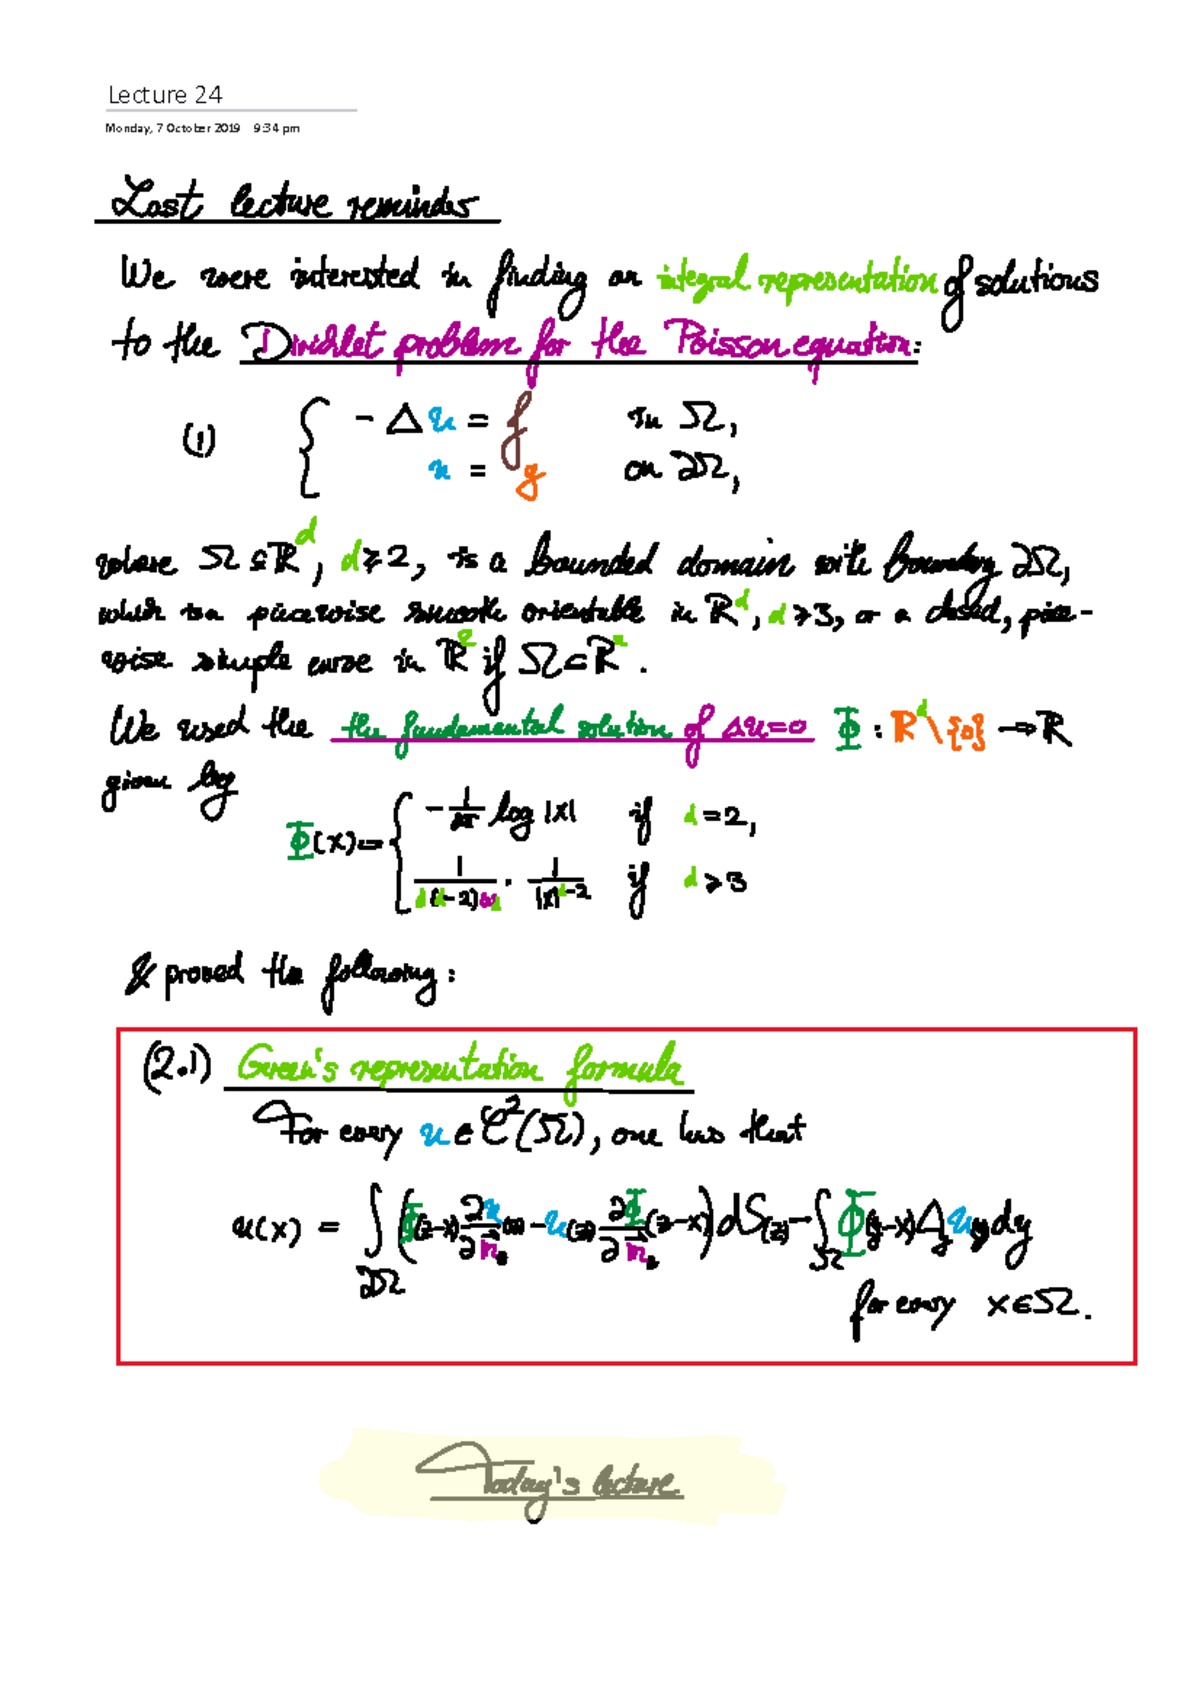 Lecture 24
Monday, 7 October 2019 9:34 pm
Last lecture reminder
We were interested in finding an integral representation of solutions
to the Dirichlet problem for the Poisson equation:
(1) { -Δu = f in Ω,
u = g on ∂Ω,
where Ω ⊆ ℝ^d, d ≥ 2, is a bounded domain with boundary ∂Ω,
which is a piecewise smooth orientable in ℝ^d, d ≥ 3, or a closed, piece-
wise simple curve in ℝ^2 if Ω ⊂ ℝ^2.
We used the the fundamental solution of Δu=0 Φ : ℝ^d \ {0} → ℝ
given by
Φ(x) = { -1/2π log |x| if d = 2,
1/(d(d-2)ω_d) · 1/|x|^(d-2) if d ≥ 3
& proved the following:
(2.1) Green's representation formula
For every u ∈ C^2(Ω), one has that
u(x) = ∫_∂Ω (Φ(z-x) ∂u/∂n_z (z) - u(z) ∂Φ/∂n_z (z-x)) dS(z) - ∫_Ω Φ(y-x) Δ_y u(y) dy
for every x ∈ Ω.
Today's lecture